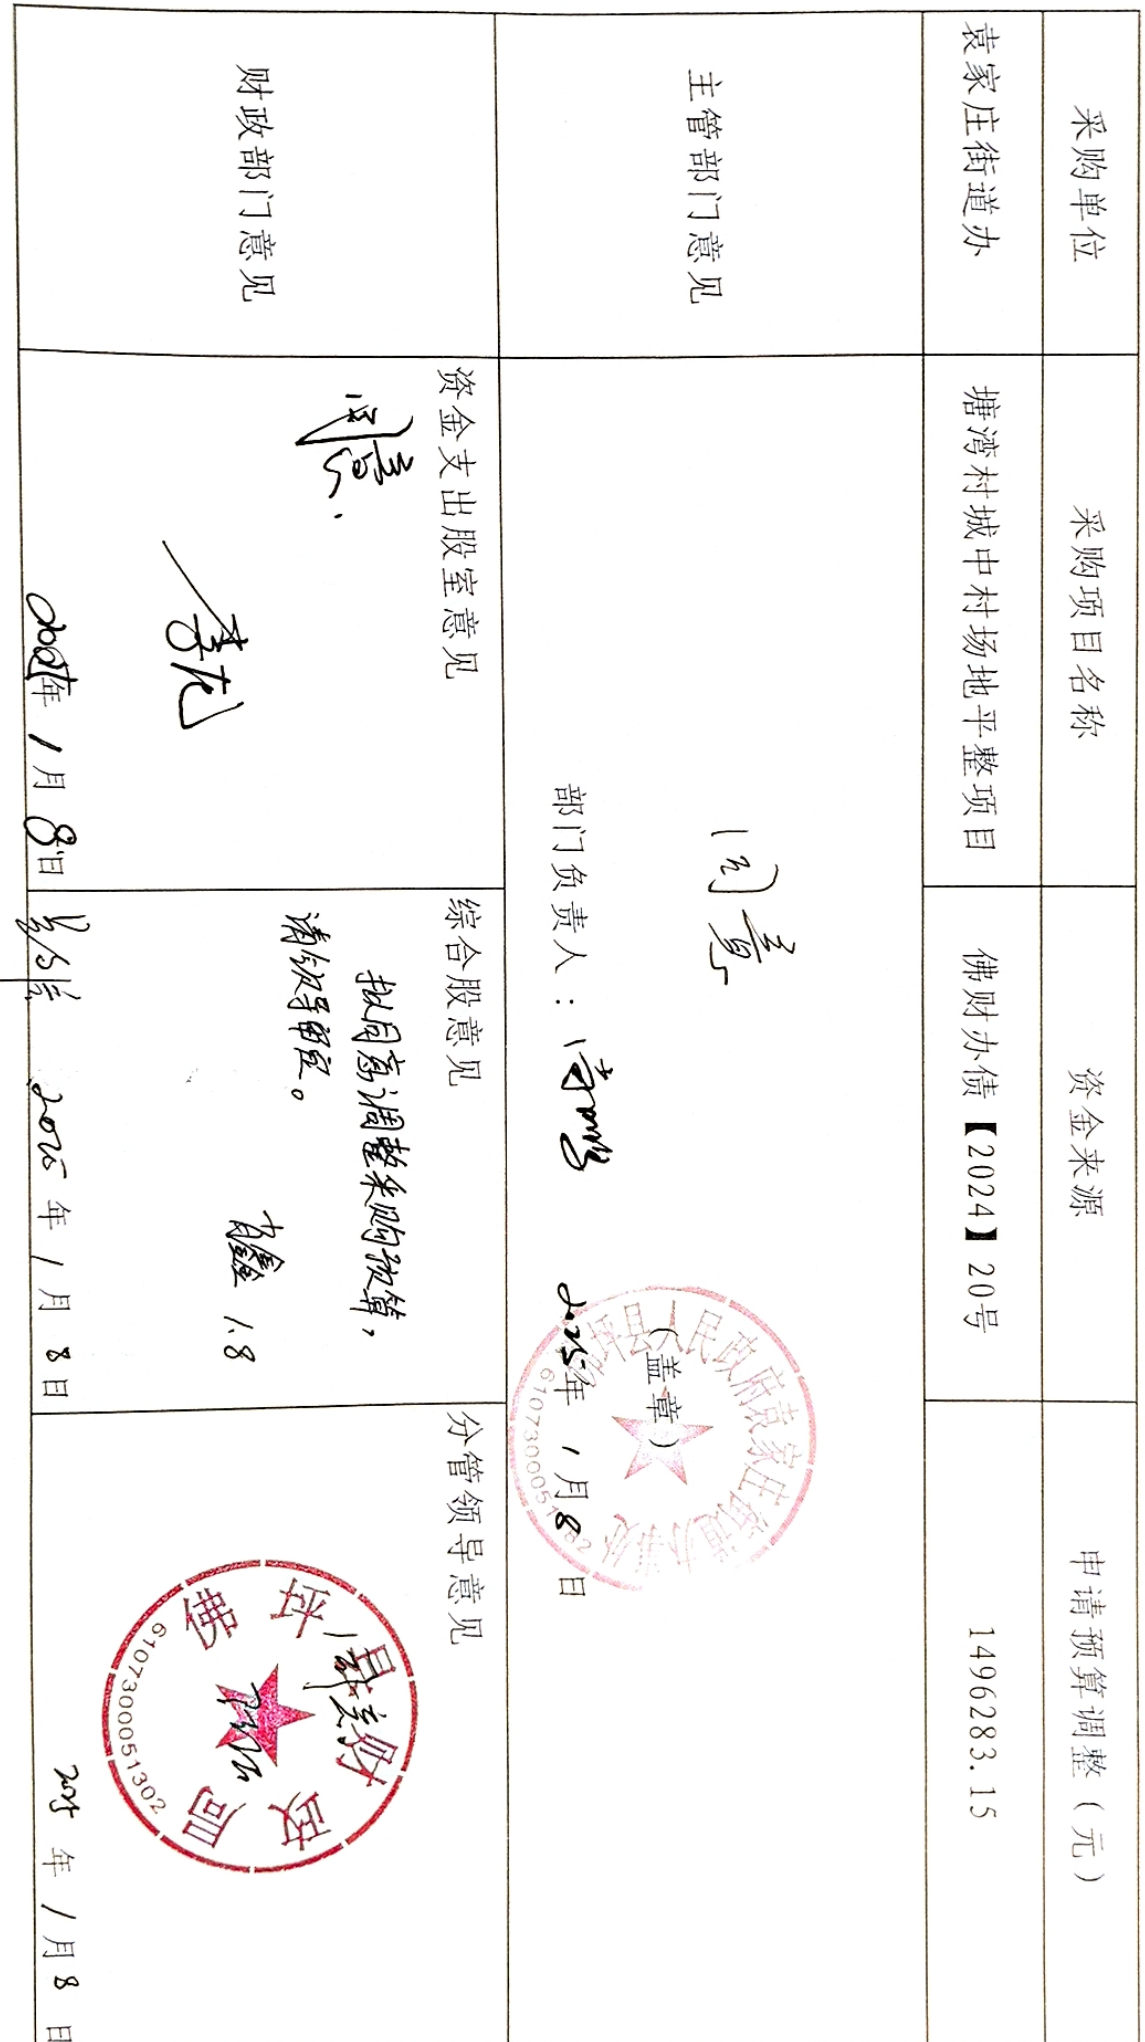 采购单位
采购项目名称
资金来源
申请预算调整（元）
袁家庄街道办
塘湾村城中村场地平整项目
佛财办债【2024】20号
1496283.15
主管部门意见
同意
部门负责人：
（盖章）
2025年 1月8日
佛坪县人民政府袁家庄街道办事处
财政部门意见
资金支出股室意见
同意.
2025年 1月8日
综合股意见
拟同意调整采购预算，
请领导审定。
1.8
2025年1月8日
分管领导意见
同意
佛坪县财政局
6107300051302
2025年1月8日